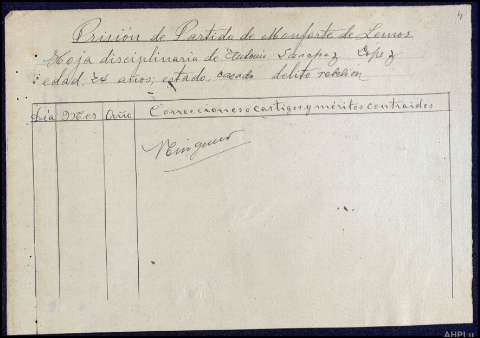 Prisión de Partido de Monforte de Lemos
Hoja disciplinaria de Antonio
edad, 24 años, estado. casado delito rebelion
Día Mes Año Correcciones o castigos y méritos contraidos
Ninguno
AHPLu